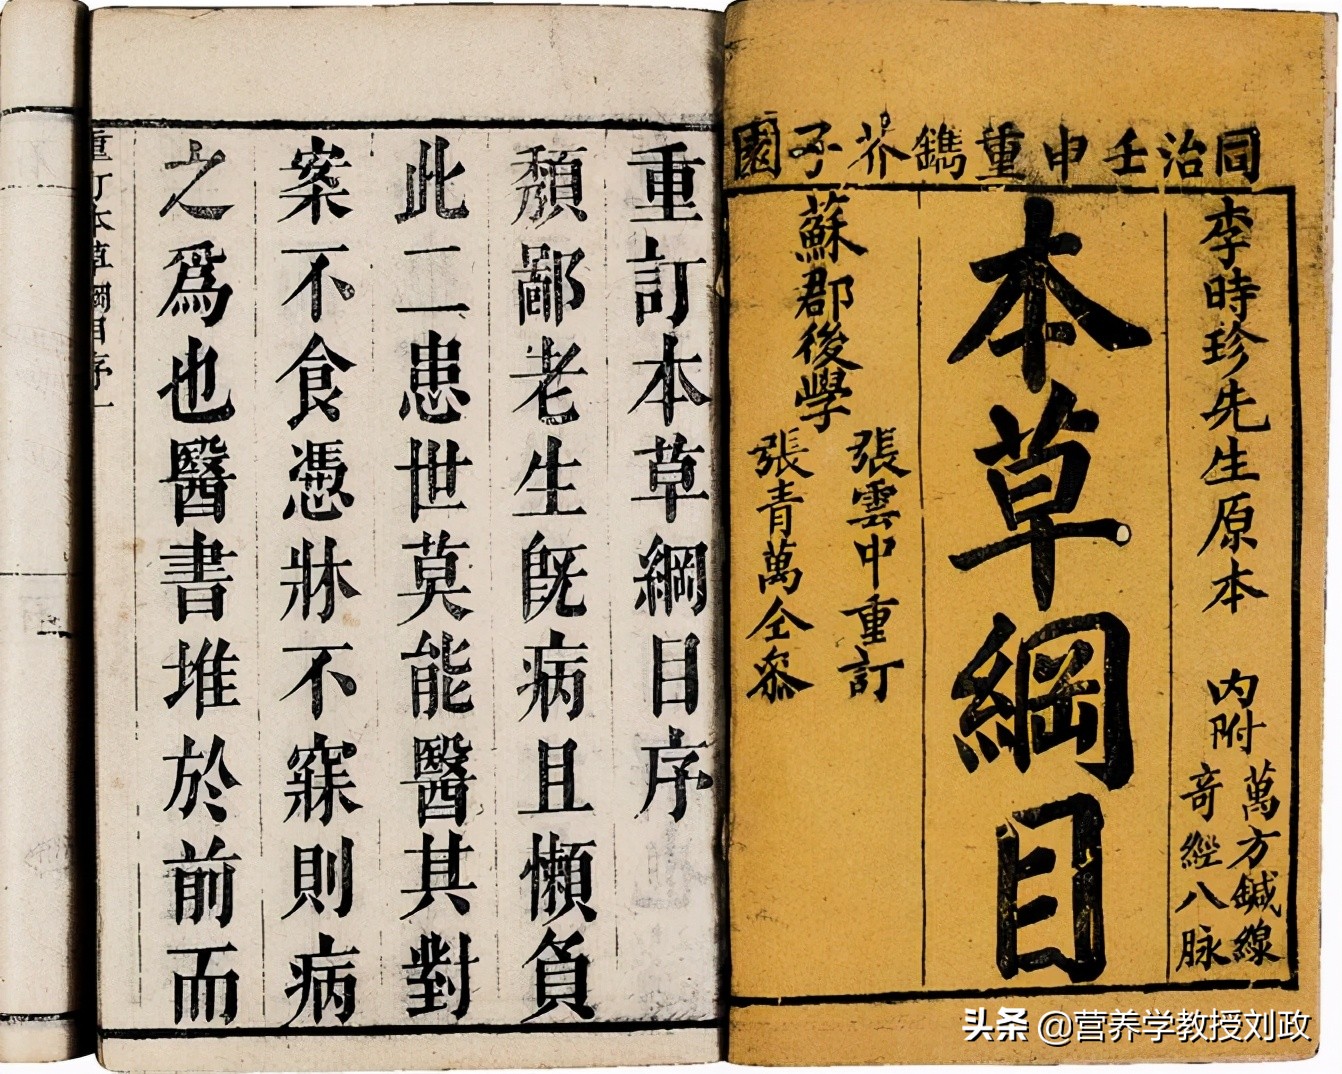 同治壬申重鐫芥子園
李時珍先生原本
内附
萬方鍼線
奇經八脉
本草綱目
蘇郡後學
張雲中重訂
張青萬仝叅
重訂本草綱目序
頽鄙老生旣病且懶負
此二患世莫能醫其對
案不食憑牀不寐則病
之爲也醫書堆於前而
重訂本草綱目序
一
头条 @营养学教授刘政